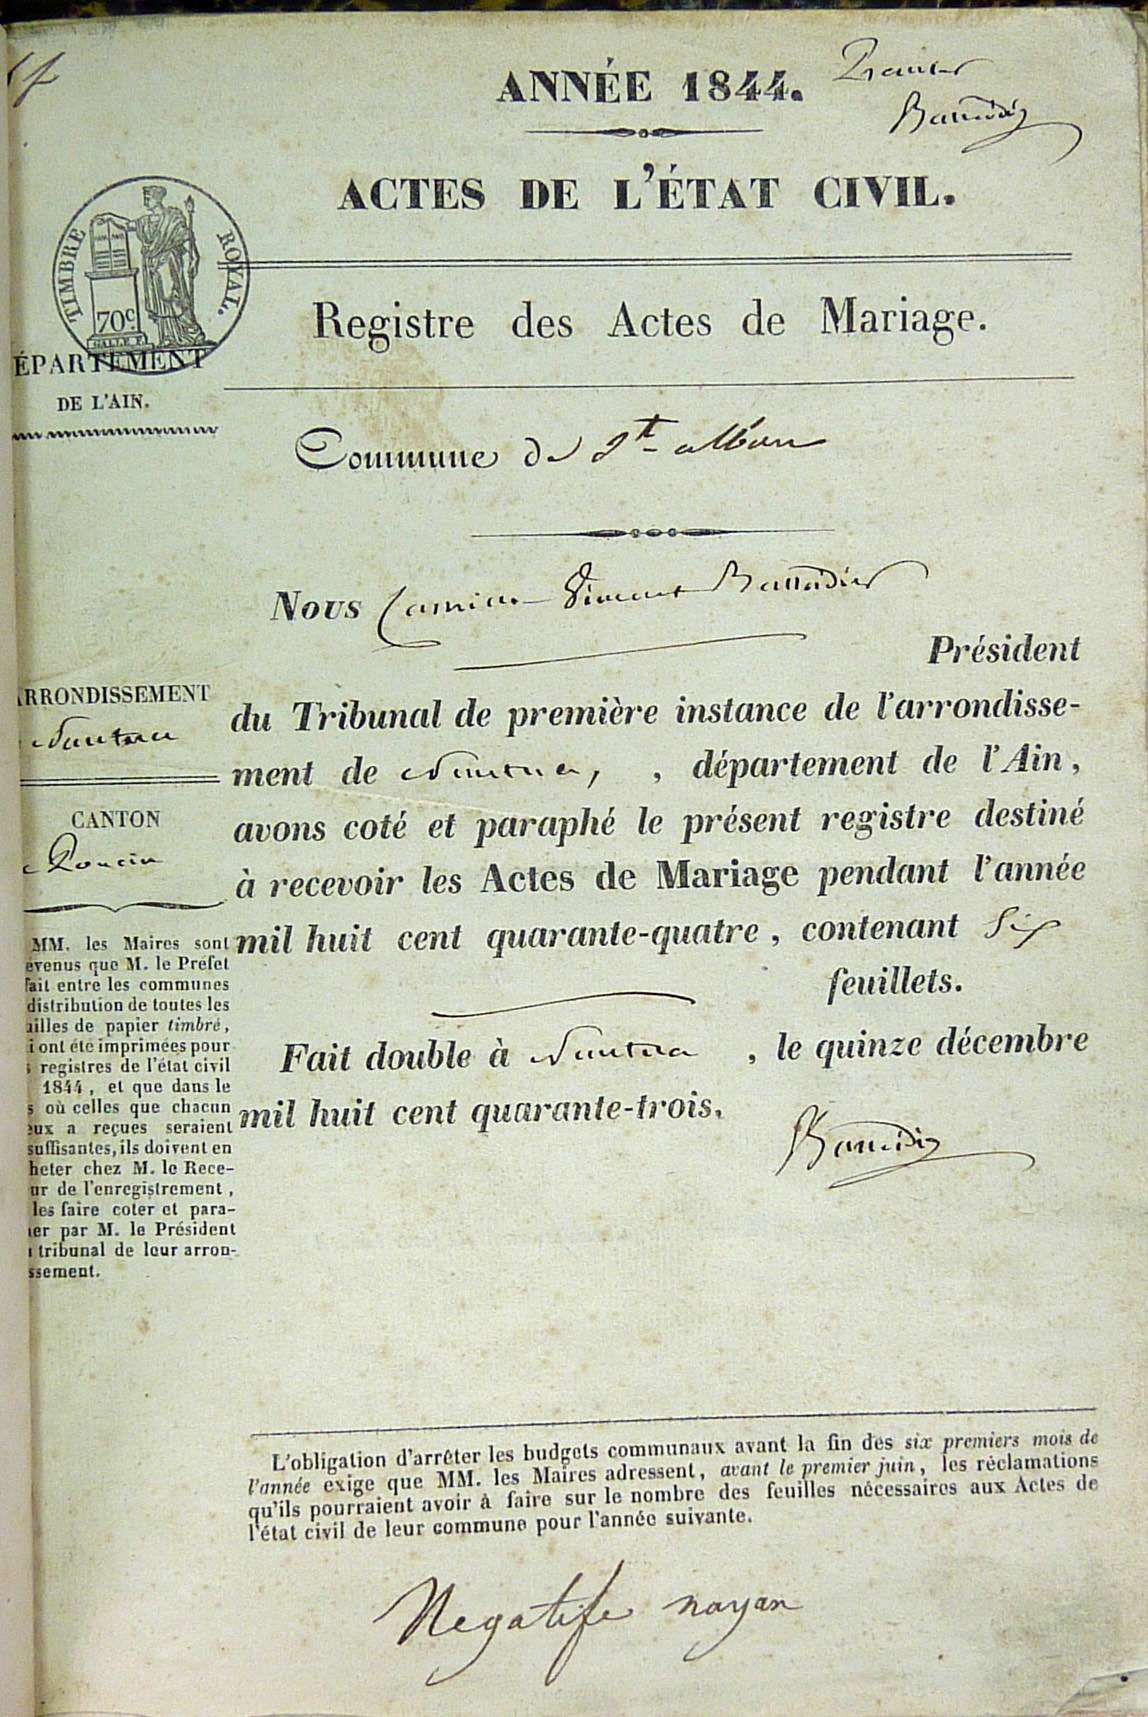 ANNÉE 1844.
ACTES DE L'ÉTAT CIVIL.
TIMBRE ROYAL.
70c
Registre des Actes de Mariage.
ÉPARTEMENT
DE L'AIN.
Commune de St alban
Nous
Président
du Tribunal de première instance de l'arrondisse-
ment de Nantua, , département de l'Ain,
avons coté et paraphé le présent registre destiné
à recevoir les Actes de Mariage pendant l'année
mil huit cent quarante-quatre, contenant Six
feuillets.
Fait double à Nantua , le quinze décembre
mil huit cent quarante-trois.
RRONDISSEMENT
Nantua
CANTON
Poncin
MM. les Maires sont
évenus que M. le Préfet
fait entre les communes
distribution de toutes les
uilles de papier timbré,
i ont été imprimées pour
s registres de l'état civil
1844, et que dans le
s où celles que chacun
eux a reçues seraient
suffisantes, ils doivent en
heter chez M. le Rece-
ur de l'enregistrement,
les faire coter et para-
er par M. le Président
u tribunal de leur arron-
ssement.
L'obligation d'arrêter les budgets communaux avant la fin des six premiers mois de
l'année exige que MM. les Maires adressent, avant le premier juin, les réclamations
qu'ils pourraient avoir à faire sur le nombre des feuilles nécessaires aux Actes de
l'état civil de leur commune pour l'année suivante.
Negatife